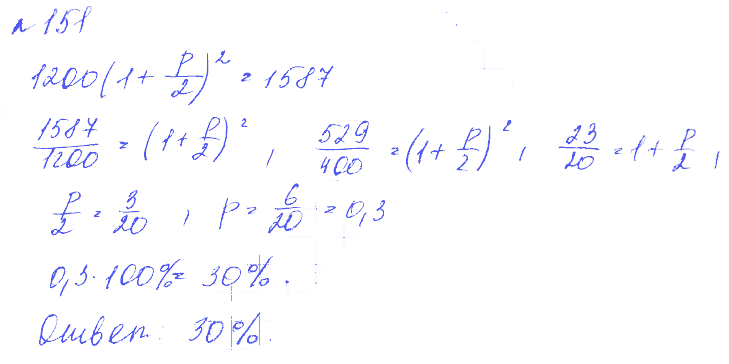 № 151
1200(1 + p/2)² = 1587
1587/1200 = (1 + p/2)², 529/400 = (1 + p/2)², 23/20 = 1 + p/2,
p/2 = 3/20, p = 6/20 = 0,3
0,3 · 100% = 30%.
Ответ: 30%.